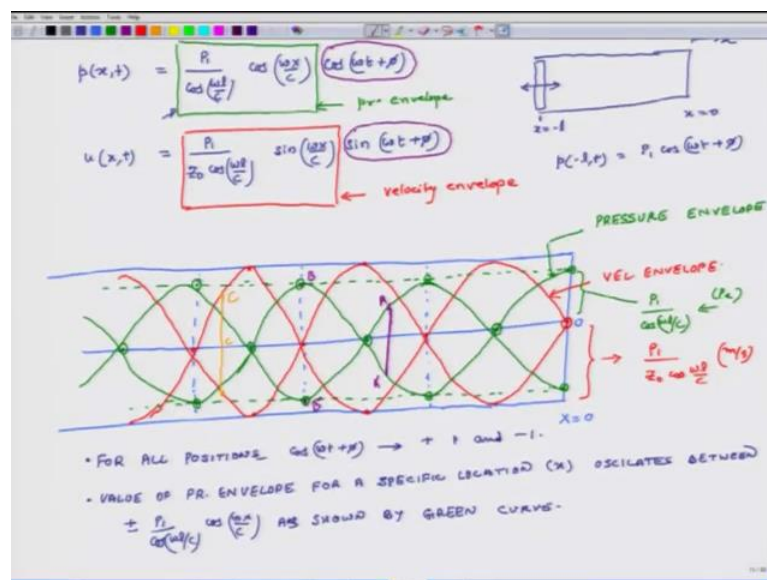 p(x,t) = P₁ / cos(ωl/c) cos(ωx/c) cos(ωt+φ)
pr. envelope
x=-l
x=0
u(x,t) = P₁ / Z₀ cos(ωl/c) sin(ωx/c) sin(ωt+φ)
velocity envelope
p(-l,t) = P₁ cos(ωt+φ)
PRESSURE ENVELOPE
VEL ENVELOPE.
P₁ / cos(ωl/c) ← (Pa)
B
A
C
C
A
B
0
→ P₁ / Z₀ cos ωl/c (m/s)
X=0
• FOR ALL POSITIONS cos(ωt+φ) → + 1 and -1.
• VALUE OF PR. ENVELOPE FOR A SPECIFIC LOCATION (x) OSCILATES BETWEEN
± P₁ / cos(ωl/c) cos(ωx/c) AS SHOWN BY GREEN CURVE.